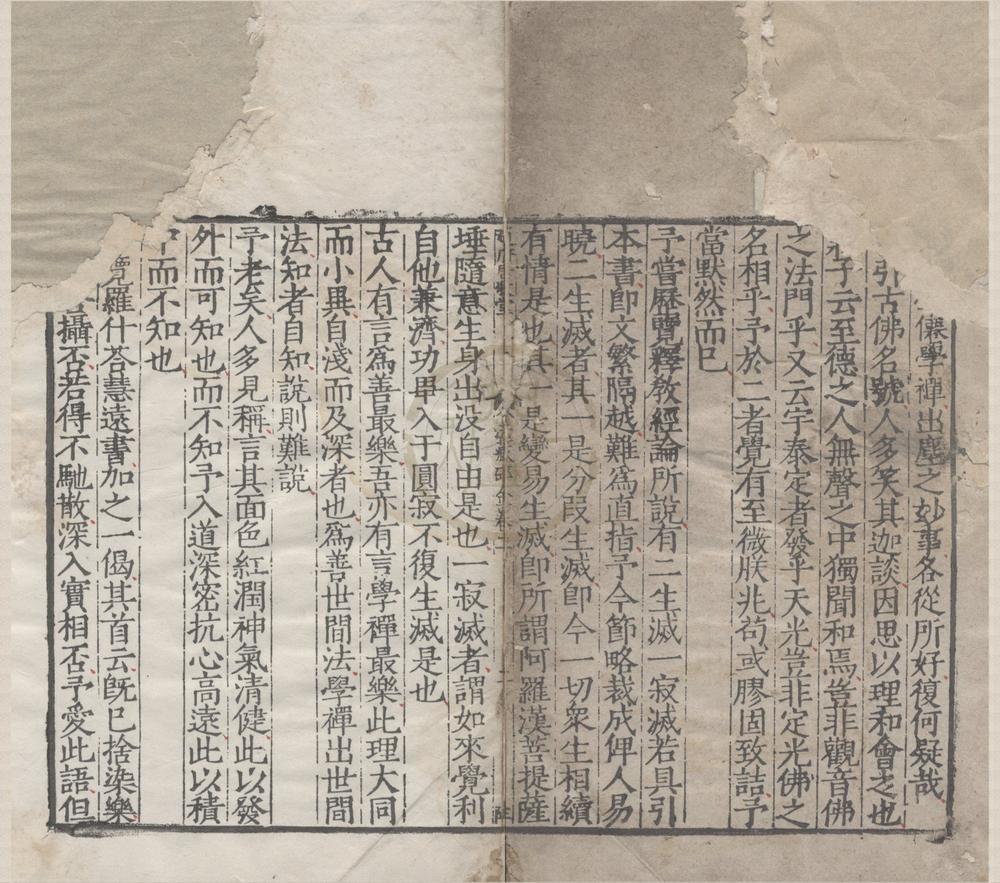 儼學禪出塵之妙事各從所好復何疑哉
引古佛名號人多笑其迦談因思以理和會之也
子云至德之人無聲之中獨聞和焉豈非觀音佛
之法門乎又云宇泰定者發乎天光豈非定光佛之
名相乎予於二者覺有至微朕兆苟或膠固致詰予
當默然而已
予嘗歷覽釋教經論所說有二生滅一寂滅若具引
本書即文繁隔越難為直指予今節略裁成俾人易
曉二生滅者其一是分段生滅即今一切眾生相續
有情是也其一是變易生滅即所謂阿羅漢菩提薩
埵隨意生身出没自由是也一寂滅者謂如來覺利
自他兼濟功畢入于圓寂不復生滅是也
古人有言為善最樂吾亦有言學禪最樂此理大同
而小異自淺而及深者也為善世間法學禪出世間
法知者自知說則難說
予老矣人多見稱言其面色紅潤神氣清健此以發
外而可知也而不知予入道深密抗心高遠此以積
中而不知也
覽羅什荅慧遠書加之一偈其首云旣已捨染樂
攝否若得不馳散深入實相否予愛此語但